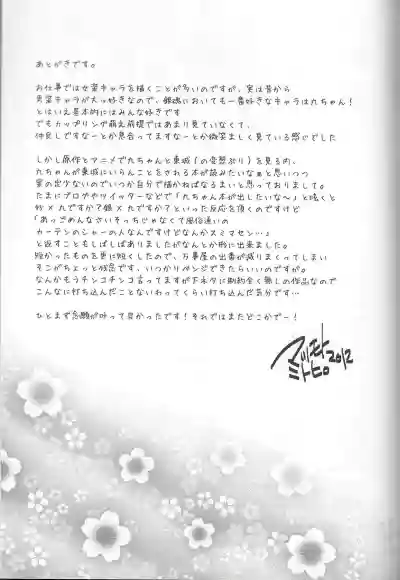 あとがきです。
お仕事では女姿キャラを描くことが多いのですが、実は昔から
男姿キャラが大っ好きなので、銀魂においても一番好きなキャラは九ちゃん!
とはいえ基本的にはみんな好きです
でもカップリング萌え前提ではあまり見ていなくて、
仲良しですなーとか息合ってますなーとか微笑ましく見ている感じでした
しかし原作とアニメで九ちゃんと東城(の変態ぶり)を見る内、
九ちゃんが東城にいらんことをされる本が読みたいなぁと思いつつ
実の定少ないのでいつか自分で描かねばなるまいと思っておりまして。
たまにブログやツイッターなどで「九ちゃん本が出したいな〜」と呟くと
妙×九ですか?銀×九ですか?といった反応を頂くのですけど
「あっごめんなさいそっちじゃなくて風俗通いの
カーテンのシャーの人なんですけどなんかスミマセン…」
と返すこともしばしばありましたがなんとか形に出来ました。
短かったものを更に短くしたので、万事屋の出番が減りまくってしまい
そこがちょっと残念です、いつかリベンジできたらいいのですが。
なんかもうチンコチンコ言ってますが下ネタに制約全く無しの作品なので
こんなに打ち込んだことないわってくらい打ち込んだ気分です…
ひとまず念願が叶って良かったです!それではまたどこかでー!
2012